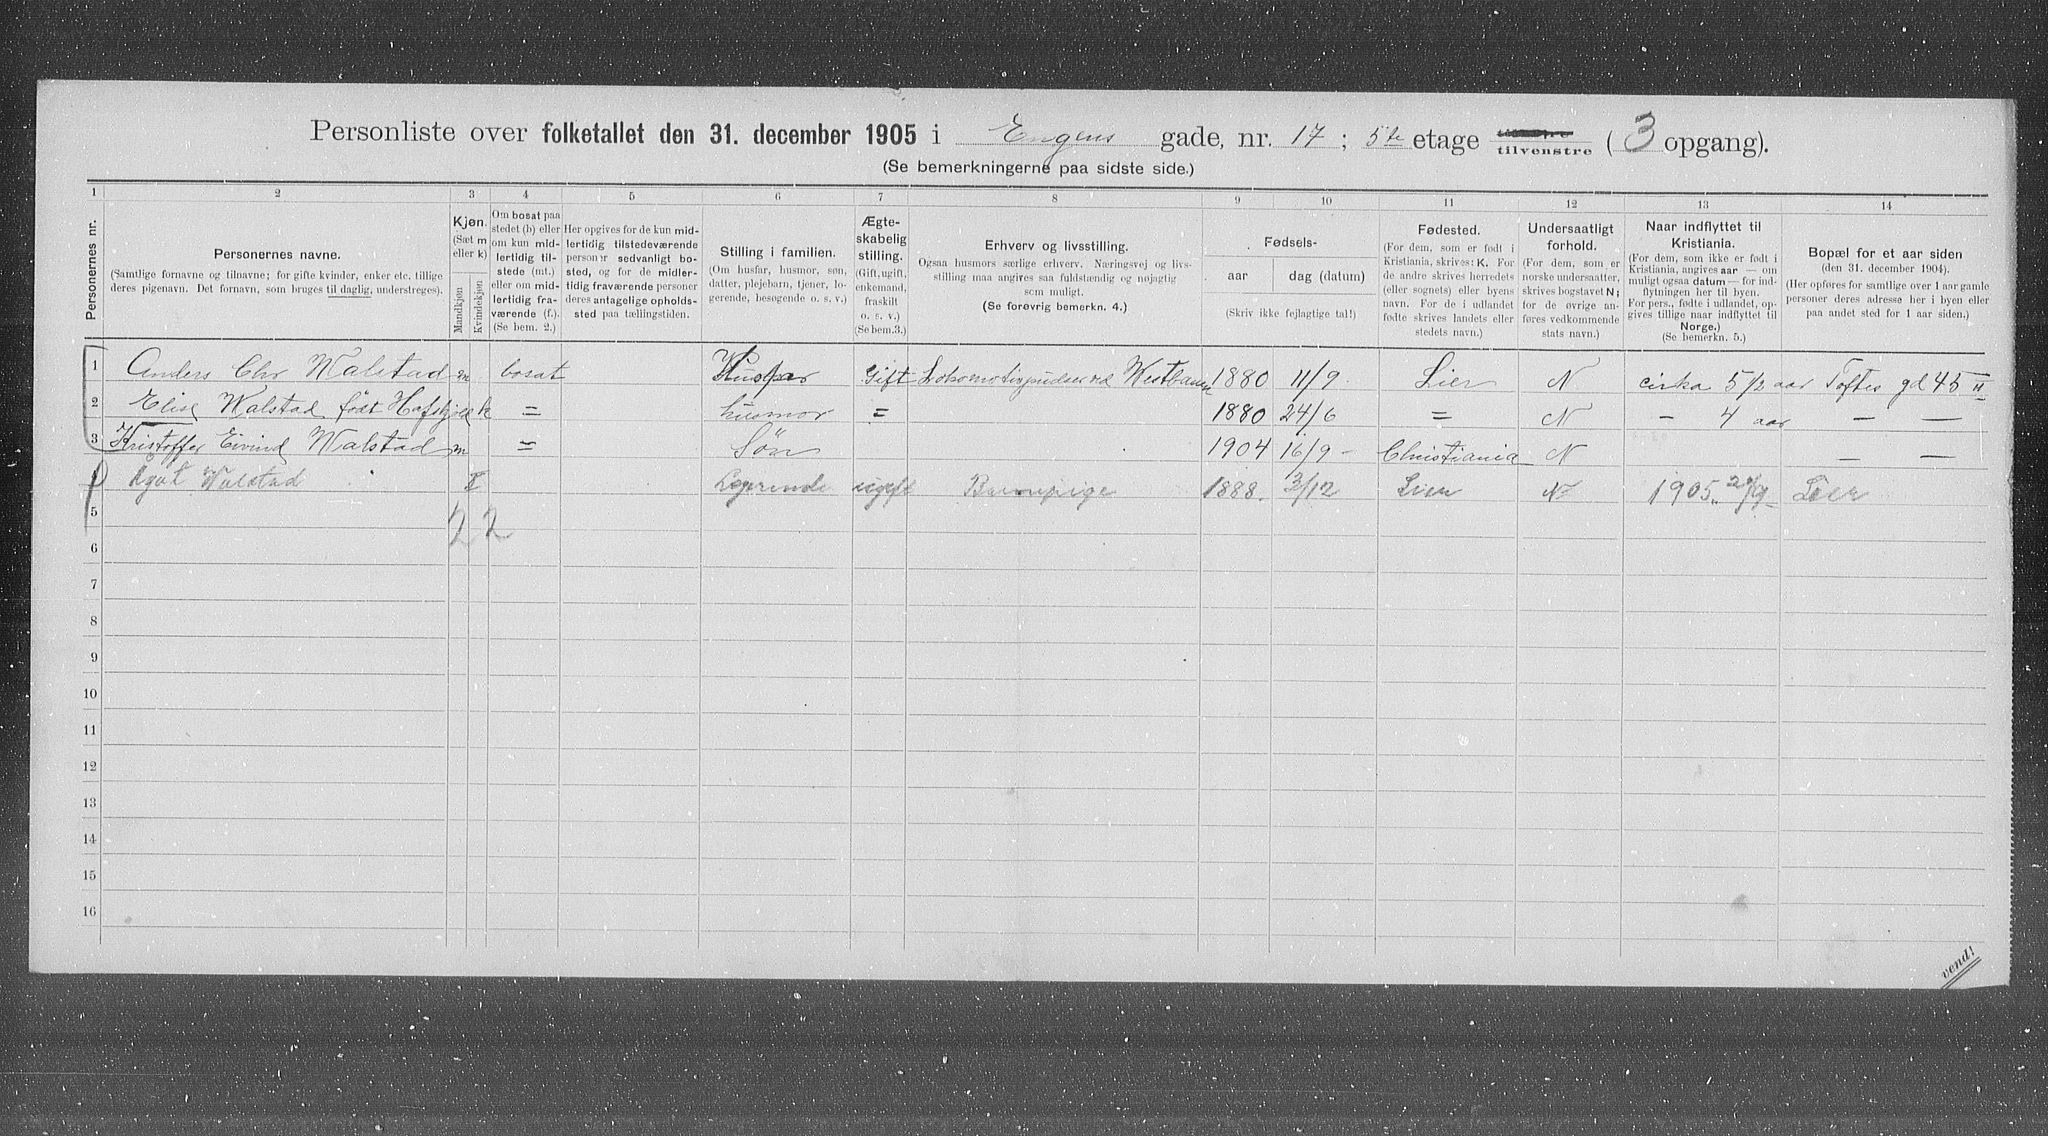 Personliste over folketallet den 31. december 1905 i Engens gade, nr. 17; 5te etage tilvenstre (3 opgang).
(Se bemerkningerne paa sidste side.)
1 2 3 4 5 6 7 8 9 10 11 12 13 14
Personernes nr.
Personernes navne.
(Samtlige fornavne og tilnavne; for gifte kvinder, enker etc. tillige
deres pigenavn. Det fornavn, som bruges til daglig, understreges).
Kjøn.
(Sæt m
eller k)
Mandkjøn
Kvindekjøn
Om bosat paa
stedet (b) eller
om kun mid-
lertidig til-
stede (mt.)
eller om mid-
lertidig fra-
værende (f.).
(Se bem. 2.)
Her opgives for de kun mid-
lertidig tilstedeværende
personer sedvanligt bo-
sted, og for de midler-
tidig fraværende personer
deres antagelige opholds-
sted paa tællingstiden.
Stilling i familien.
(Om husfar, husmor, søn,
datter, plejebarn, tjener, lo-
gerende, besøgende o. s. v.)
Ægte-
skabelig
stilling.
(Gift, ugift,
enkemand,
fraskilt
o. s. v.)
(Se bem.3.)
Erhverv og livsstilling.
Ogsaa husmors særlige erhverv. Næringsvej og livs-
stilling maa angives saa fuldstændig og nøjagtig
som muligt.
(Se forøvrig bemerkn. 4.)
Fødsels-
aar
dag (datum)
(Skriv ikke fejlagtige tal!)
Fødested.
(For dem, som er født i
Kristiania, skrives: K. For
de andre skrives herredets
(eller sognets) eller byens
navn. For de i udlandet
fødte skrives landets eller
stedets navn.)
Undersaatligt
forhold.
(For dem, som er
norske undersaatter,
skrives bogstavet N;
for de øvrige an-
føres vedkommende
stats navn.)
Naar indflyttet til
Kristiania.
(For dem, som ikke er født i
Kristiania, angives aar — om
muligt ogsaa datum — for ind-
flytningen her til byen.
For pers., fødte i udlandet, op-
gives tillige naar indflyttet til
Norge.)
(Se bemerkn. 5.)
Bopæl for et aar siden
(den 31. december 1904).
(Her opføres for samtlige over 1 aar gamle
personer deres adresse her i byen eller
paa andet sted for 1 aar siden.)
1 Anders Chr Walstad m bosat Husfar Gift Lokomotivpudser ved Westbanen 1880 11/9 Lier N cirka 5 1/2 aar Toftes gd 45 II
2 Elise Walstad født k = husmor = 1880 24/6 = N — 4 aar — —
3 Kristoffer Eivind Walstad m = Søn 1904 16/9 — Christiania N — —
Agat Walstad k Logerende ugift Barnepige 1888. 3/12 Lier N 1905 Lier
2 2
5
6
7
8
9
10
11
12
13
14
15
16
vend!